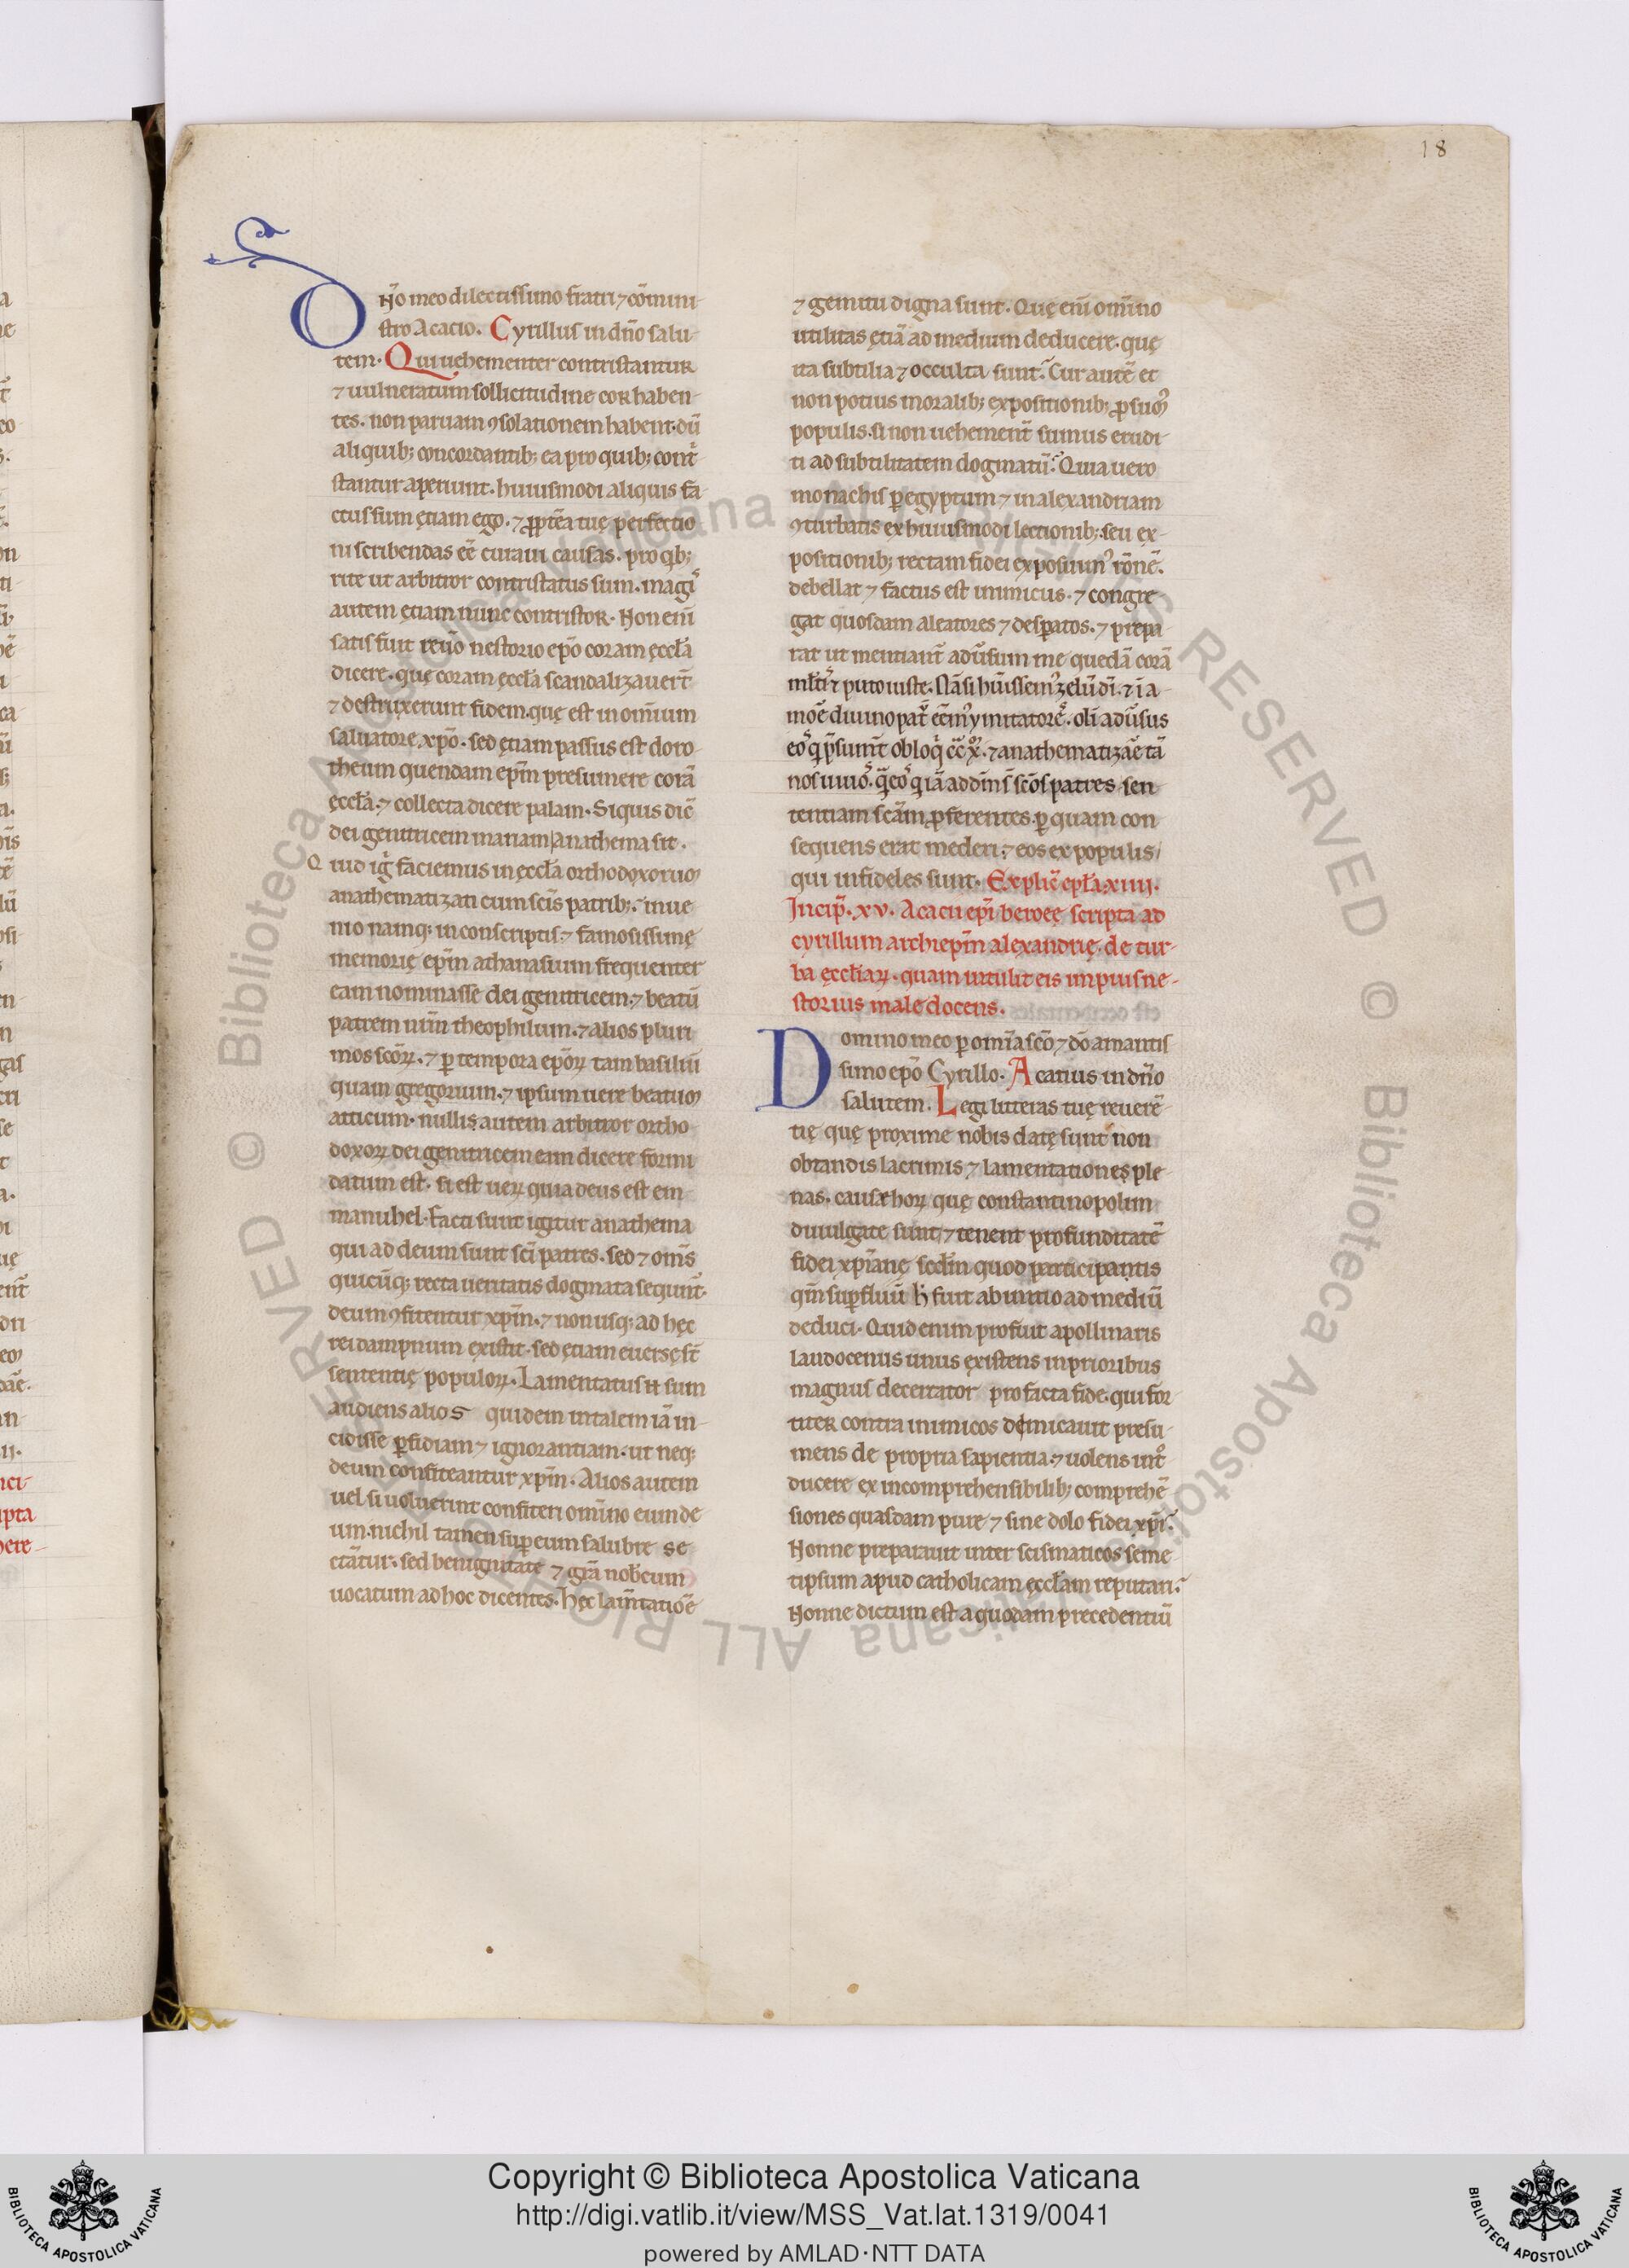 18
Dño meo dilectissimo fratri ⁊ cõmini-
stro Acacio. Cyrillus in dño salu-
tem. Qui uehementer contristantur
⁊ uulneratum sollicitudine cor haben-
tes. non paruam ꝯsolationem habent. dũ
aliquib; concordantib; ea pro quib; cont̃-
stantur aperiunt. huiusmodi aliquis fa-
ctus sum ętiam ego. ⁊ ꝓpt̃ea tuę perfectio
ni scribendas eẽ curaui causas. pro qb;
rite ut arbitror contristatus sum. magiˀ
autem ętiam nunc contristor. Non enĩ
satis fuit reṽo nestorio epõ coram ęccƚa
dicere. quę coram ęccƚa scandalizauer̃t
⁊ destruxerunt fidem. quę est in om̃ium
saluatore xp̃o. sed ętiam passus est doro-
theum quendam ep̃m presumere corã
ęccƚa. ⁊ collecta dicere palam. Siquis dic̃
dei genitricem mariam anathema sit.
Quid iǵ faciemus in ęccƚa orthodoxoruꝫ
anathematizati cum scĩs patrib;. inue
nio namq; in conscriptis. ⁊ famosissimę
memorię ep̃m athanasium frequenter
eam nominasse dei genitricem. ⁊ beatũ
patrem nr̃m theophilum. ⁊ alios pluri
mos scõꝝ. ⁊ ꝑ tempora epõꝝ tam basiliũ
quam gregorium. ⁊ ipsum uere beatuꝫ
atticum. nullis autem arbitror ortho
doxoꝝ dei genitricem eam dicere formi
datum est. si est ueꝝ quia deus est em
manuhel. facti sunt igitur anathema
qui ad deum sunt scĩ patres. sed ⁊ om̃s
quicũq; recta ueritatis dogmata sequunt̃.
deum ꝯfitentur xp̃m. ⁊ non usq; ad hęc
rei dampnum existit. sed ętiam euersę st̃
sententię populoꝝ. Lamentatus ñ sum
audiens alios quidem in talem iã in-
cidisse ꝑfidiam ⁊ ignorantiam. ut neq;
deum confiteantur xp̃m. Alios autem
uel si uoluerint confiteri om̃ino eum de
um. nichil tamen suꝑ eum salubre se
ctãtur. sed benignitate ⁊ grã nob̃ eum
uocatum ad hoc dicentes. hęc lam̃tatiõe
⁊ gemitu digna sunt. Quę enĩ om̃ino
utilitas ętiã ad medium deducere. quę
ita subtilia ⁊ occulta sunt. Cur autẽ et
non potius moralib; expositionib; ꝓsumꝰ
populis. si non uehement̃ sumus erudi-
ti ad subtilitatem dogmatũ. Quia uero
monachis ꝑ egyptum ⁊ in alexandriam
ꝯturbatis ex huiusmodi lectionib; seu ex-
positionib; rectam fidei exposuimꝰ rõnẽ.
debellat ⁊ factus est inimicus. ⁊ congre-
gat quosdam aleatores ⁊ desꝑatos. ⁊ prepa
rat ut mentiant̃ adũsum me quedã corã
⁊ puto iuste. Nã si hũissemꝰ zelũ dĩ. ⁊ ĩ a-
nos uiuoˀ.
tentiam scãm ꝓferentes. ꝑ quam con
sequens erat mederi. ⁊ eos ex populis,
qui infideles sunt. Explic̃ epƚa. xiiij.
Incip̃. xv. Acacii ep̃i beroeę scripta ad
cyrillum archiep̃m alexandrię. de tur-
ba ęccƚiaꝝ. quam intulit eis impius ne-
storius male docens.
Domino meo ꝑ om̃ia scõ ⁊ dõ amantis
simo epõ Cyrillo. Acatius in dño
salutem. Legi litteras tuę reuerẽ-
tię quę proxime nobis datę sunt non
obtandis lacrimis ⁊ lamentationes ple
nas. causa hoꝝ quę constantinopolim
diuulgate sunt, ⁊ tenent profunditatẽ
fidei xp̃ianę secƚm quod participantis
qm̃ suꝑfluũ ħ fuit ab initio ad mediũ
deduci. Quid enim profuit apollinaris
laudocenus unus existens in prioribus
magnus deceitator pro facta fide. qui for-
titer contra inimicos dimicauit presu-
mens de propria sapientia. ⁊ uolens int̊
ducere ex incomprehensibilib; comprehẽ
siones quasdam pure ⁊ sine dolo fidei xp̃i.
Nonne preparauit inter scismaticos seme
tipsum apud catholicam ęccƚam reputari.
Nonne dictum est a quodam precedentiũ
Copyright © Biblioteca Apostolica Vaticana
http://digi.vatlib.it/view/MSS_Vat.lat.1319/0041
powered by AMLAD·NTT DATA
BIBLIOTECA APOSTOLICA VATICANA
BIBLIOTECA APOSTOLICA VATICANA